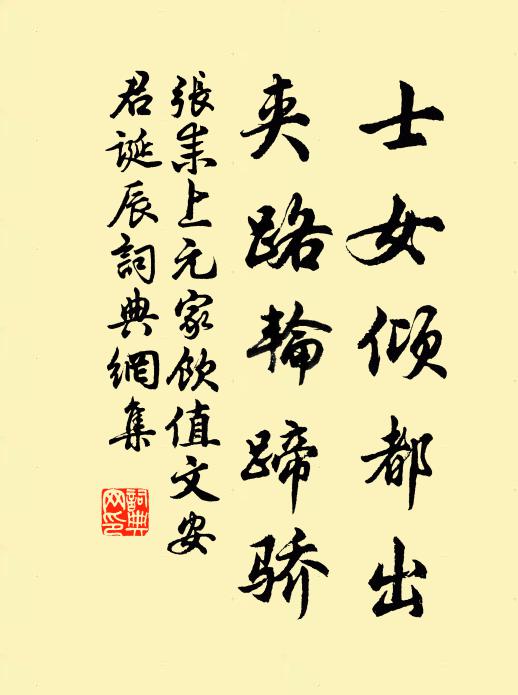 士女倾都出
夹路輪蹄骄
張耒上元家飲值文安
君誕辰詞典網集
詞典
网印